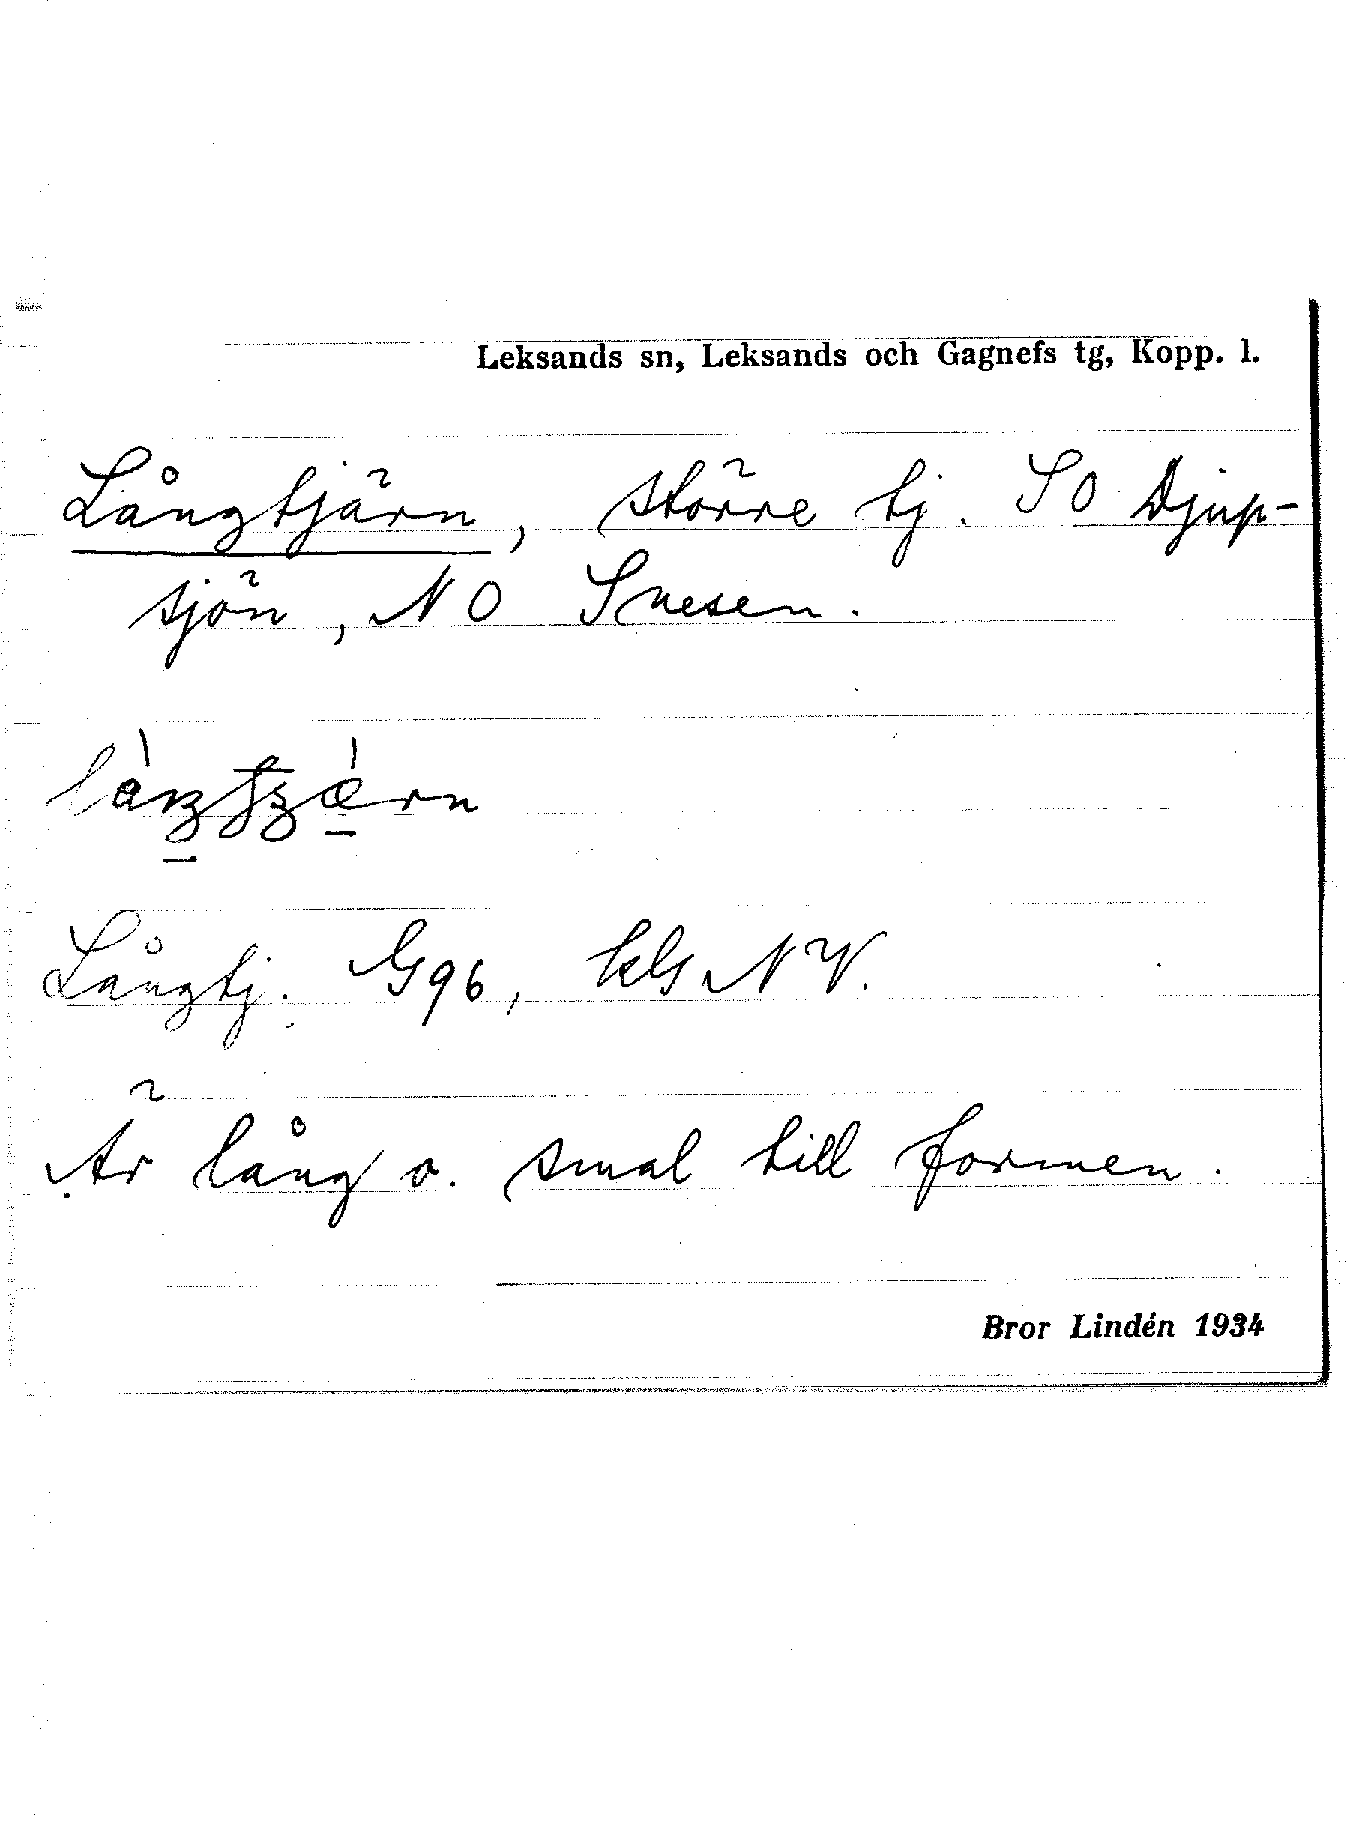 Leksands sn, Leksands och Gagnefs tg, Kopp. l.
Långtjärn, större tj. SO Djup-
sjön, NO Snesen.
Långtj. G96, kbl NV.
Är lång o. smal till formen.
Bror Lindén 1934